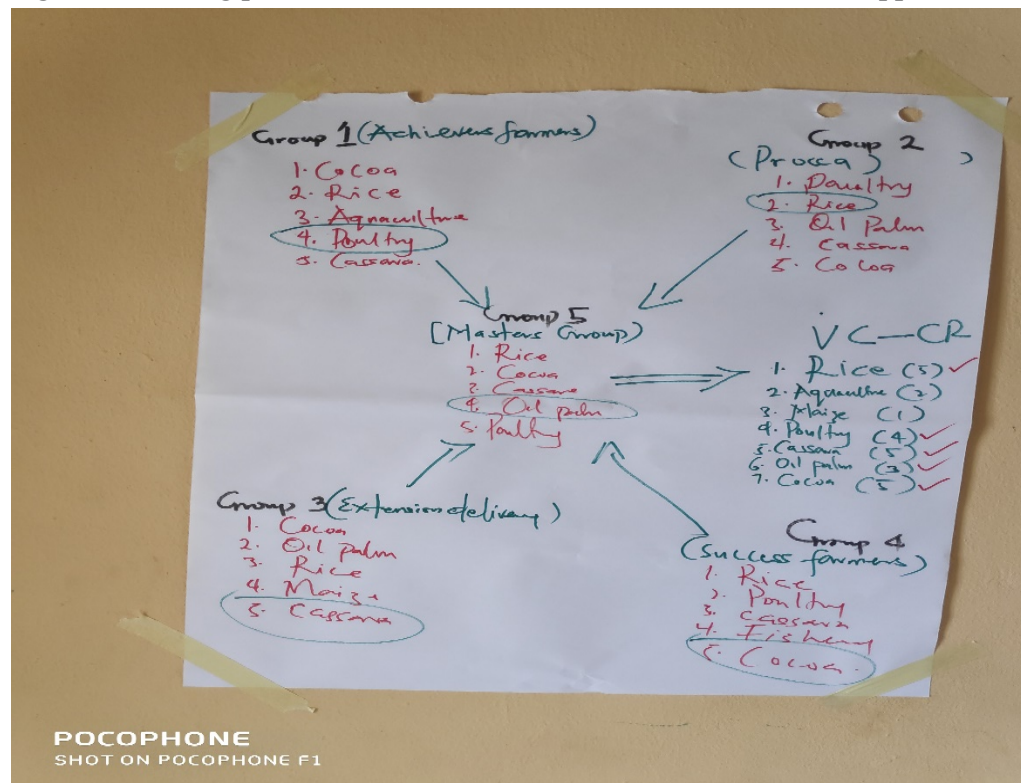 Group 1 (Achievers farmers)
1. Cocoa
2. Rice
3. Aquaculture
4. Poultry
5. Cassava.
Group 2
(Procca)
1. Poultry
2. Rice
3. Oil Palm
4. Cassava
5. Cocoa
Group 5
[Masters Group)
1. Rice
2. Cocoa
3. Cassava
4. Oil palm
5. Poultry
VC-CR
1. Rice (5) ✓
2. Aquaculture (2)
3. Maize (1)
4. Poultry (4) ✓
5. Cassava (5) ✓
6. Oil palm (3) ✓
7. Cocoa (5) ✓
Group 3 (Extension delivery)
1. Cocoa
2. Oil palm
3. Rice
4. Maize
5. Cassava
Group 4
(Success farmers)
1. Rice
2. Poultry
3. Cassava
4. Fishery
5. Cocoa.
POCOPHONE
SHOT ON POCOPHONE F1